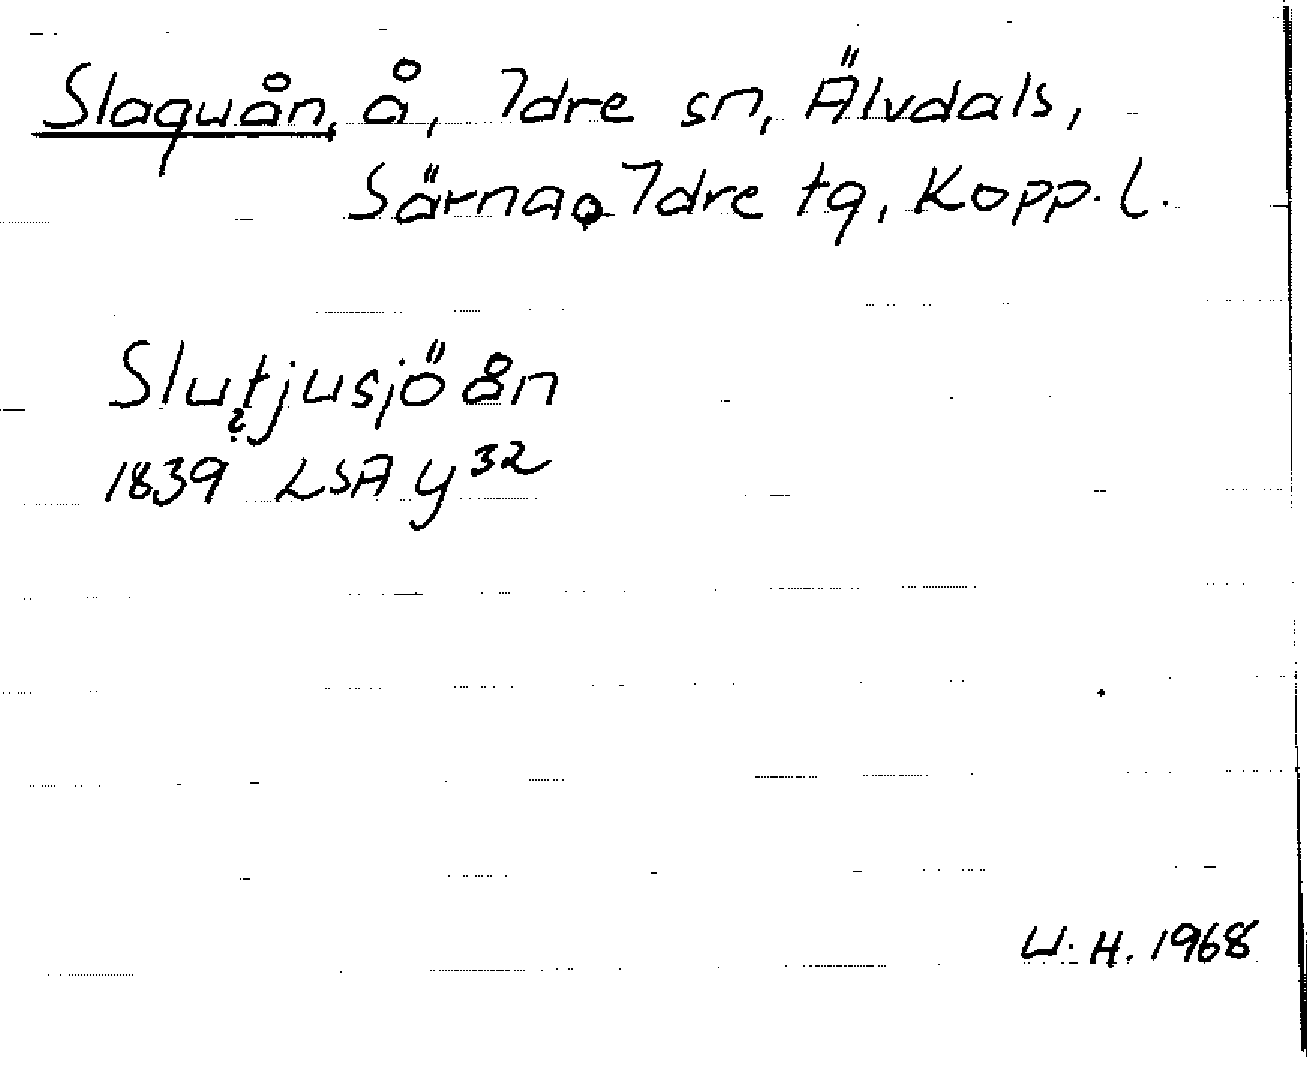 Slaguån, å, Idre sn, Älvdals,
Särna o Idre tg, Kopp. l.
Slutjusjö ån
?
1839 LSA y 32
U. H. 1968